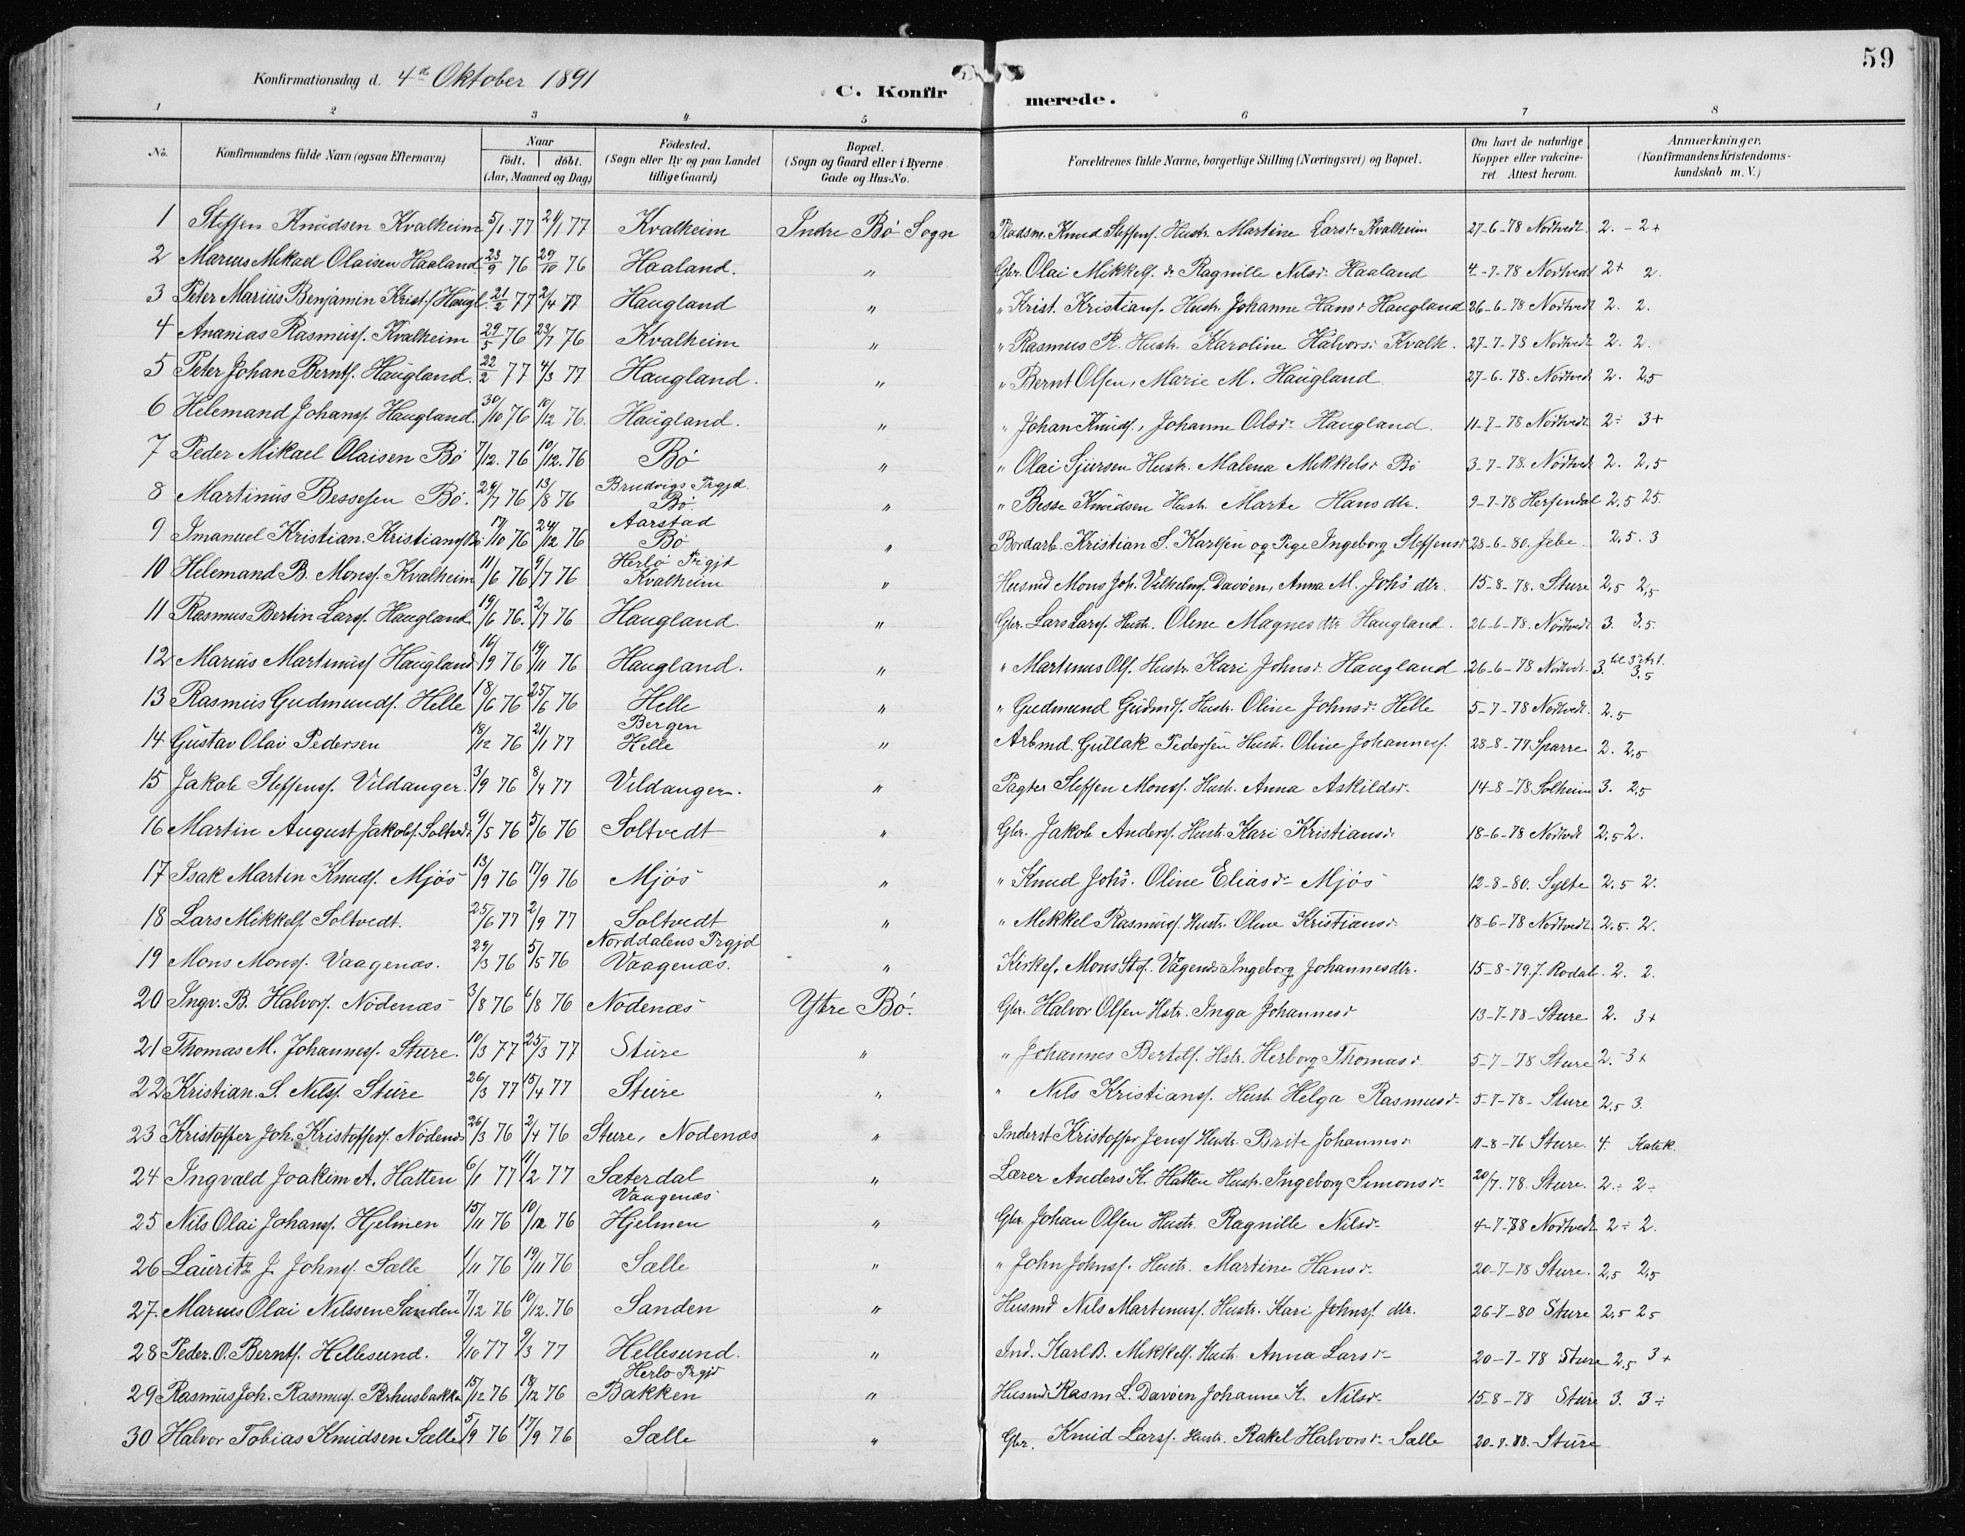 59
Konfirmationsdag d. 4de Oktober 1891
C. Konfirmerede.
1 2 3 4 5 6 7 8
No. Konfirmandens fulde Navn (ogsaa Efternavn) Naar født. døbt. (Aar, Maaned og Dag) Fødested. (Sogn eller By og paa Landet tillige Gaard) Bopæl. (Sogn og Gaard eller i Byerne Gade og Hus-No. Forældrenes fulde Navne, borgerlige Stilling (Næringsvei) og Bopæl. Om havt de naturlige Kopper eller vakcineret. Attest herom. Anmærkninger. (Konfirmandens Kristendomskundskab m. V.)
1 Steffen Knudsen Kvalheim 5/1 77 21/1 77 Kvalheim Indre Bø Sogn Knud Steffens. Hustr. Martine Larsdr Kvalheim 27-6-78 Nødtvedt. 2. - 2+
2 Marius Mikael Olaisen Haaland 23/9 76 29/10 76 Haaland. " Gbr. Olai Mikkels. & Ragnille Nilsdr Haaland 4-7-78 Nodtvedt 2+ 2.
3 Peter Marius Benjamin Krist.s Haugl. 21/2 77 2/4 77 Haugland " " Krist. Kristians. Hustr. Johanne Hansdr Haugland 26-6-78 Nodtvedt 2. 2.
4 Ananias Rasmuss. Kvalheim 29/5 76 23/7 76 Kvalheim " " Rasmus R. Hustr. Karoline Halvorsdr Kvalh. 27-7-78 Nodtvedt 2. 2.
5 Peter Johan Bernts. Haugland. 22/2 77 4/3 77 Haugland. " " Bernt Olsen, Marie M. Haugland 27-6-78. Nodtvedt 2. 2,5
6 Helemand Johans. Haugland. 30/10 76 10/12 76. Haugland. " " Johan Knuds., Johanne Olsdr Haugland. 11-7-78 Nodtvedt 2÷ 3+
7 Peder Mikael Olaisen Bø 7/12. 76 10/12. 76 Bø " " Olai Sjursen Hustr. Malena Mikkelsdr Bø 3-7-78. Nodtvedt 2. 2,5
8 Martinus Bessesen Bø. 29/7 76 13/8 76 Brudvigs Prgjd. Bø. " " Besse Knudsen Hustr. Marte Hansdtr. 9-7-78 Herfindal 2,5 2,5.
9 Imanuel Kristian Kristians. Bø 17/10 76 24/12 76 Aarstad Bø " Bordarb. Kristian S. Karlsen og Pige Ingeborg Steffensdr 28-6-80. Jebe 2,5. 3
10 Helemand B. Mons. Kvalheim 11/6 76 9/7 76 Herlø Prgjd Kvalheim " Husmd Mons Joh. Vilhelms. Davøen, Anna M. Johs dtr. 15-8-78. Sture 2,5 2,5
11 Rasmus Bertin Lars. Haugland 19/6 76. 2/7 76 Haugland. " Gbr. Lars Lars. Hustr. Oline Magnesdtr Haugland. 26-6-78. Nodtvedt 3. 3,5.
12 Marius Martinus. Haugland 16/9 76 19/11 76 Haugland. " " Martinus Ols. Hustr. Kari Johnsdr Haugland 26-6-78 Nodtvedt 3. 3,5
13 Rasmus Gudmunds. Helle 18/6 76 25/6 76 Helle " " Gudmund Gudmds. Hustr. Oline Johnsdr Helle 5-7-78 Nodtvedt. 2.5
14 Gustav Olai Pedersen 18/12 76 21/1 77 Bergen Helle " Arbmd. Gullak Pedersen Hustr. Oline Johannes. 28-8-77 Sparre 2. 2,5
15 Jakob Steffens. Vildanger. 3/9 76 8/4 77 Vildanger. " Pagter Steffen Mons. Hustr. Anna Askildsdr. 14-8-78 Solheim 3. 2,5
16 Martin August Jakobs. Soltvedt 9/5 76 5/6 76 Soltvedt " Gbr. Jakob Anders. Hustr. Kari Kristiansdr. 18-6-78 Nodtvedt 2,5 2.
17 Isak Martin Knuds. Mjøs 13/9 76 17/9 76 Mjøs " " Knud Johs. Oline Eliasdr Mjøs 12-8-80. Sylte 2,5 2.
18 Lars Mikkels. Soltvedt. 25/6 77 2/9 77 Soltvedt " " Mikkel Rasmus. Hustr. Oline Kristiansdr. 18-6-78 Nodtvedt. 2,5. 2.
19 Mons Mons. Vaagenæs. 29/3 76 5/5 76 Norddalens Prgjd Vaagenæs. " Mons Vågenes Ingeborg Johannesdtr. 15-8-79. J. Rodal. 2. 2.
20 Ingv. B. Halvors. Nødenæs 3/8 76 6/8 76 Nødenæs Ytre Bø. Gbr. Halvor Olsen Hstr. Inga Johannesdr 13-7-78 Sture 2. 3+
21 Thomas M. Johannes. Sture. 10/3 77 25/3 77 Sture " " Johannes Bertels. Hstr. Herborg Thomasdr. 5-7-78 Sture 2. -3+
22 Kristian. S. Nils. Sture 26/3 77 15/4 77 Sture " " Nils Kristians. Hustr. Helga Rasmusdr 5-7-78- Sture 2,5 3.
23 Kristoffer Joh. Kristoffers. Nødenæs 26/3 76 2/4 76 Sture, Nødenæs " Inderst Kristoffer Jens. Hustr. Brite Johannesdr 11-8-76 Sture. 4. Katek.
24 Ingvald Joakim A. Hatten 6/1 77 11/2 77 Sæterdal Vaagenæs " Lærer Anders K. Hatten Hustr. Ingeborg Simonsdr 20/7. 78. Sture. 2÷ 2÷
25 Nils Olai Johans. Hjelmen 15/11 76 10/12 76 Hjelmen " Gbr. Johan Olsen Hustr. Ragnille Nilsdr 4-7-78 Nodtvedt 2÷ 2.
26 Lauritz J. Johns. Sælle 1/11 76 19/11 76 Sælle " " John Johns. Hustr. Martine Hansdr 20-7-78 Sture. 2,5 2,5
27. Marius Olai Nilssen Sanden 7/12 76 10/12. 76 Sanden " Husmd Nils Martinus. Hustr. Kari Johns. dtr. 26-7-80 Sture 2,5 2,5
28 Peder. O. Bernts. Hellesund. 9/10 77 9/3 77 Hellesund. " Ind. Karl B. Mikkels. Hustr. Anna Larsdr 20-7-78 Sture 2,5 3+
29 Rasmus Joh. Rasmus. Perhusbakke 15/12 76 18/12 76 Herlø Prgjd Bakken " Husmd Rasm L. Davøen Johanne K. Nilsdr 15-8-78 Sture 3. 3÷
30 Halvor Tobias Knudsen Sælle 5/9 76 17/9 76 Sælle " Gbr. Knud Lars. Hustr. Rakel Halvorsdr Sælle 20-7-78. Sture